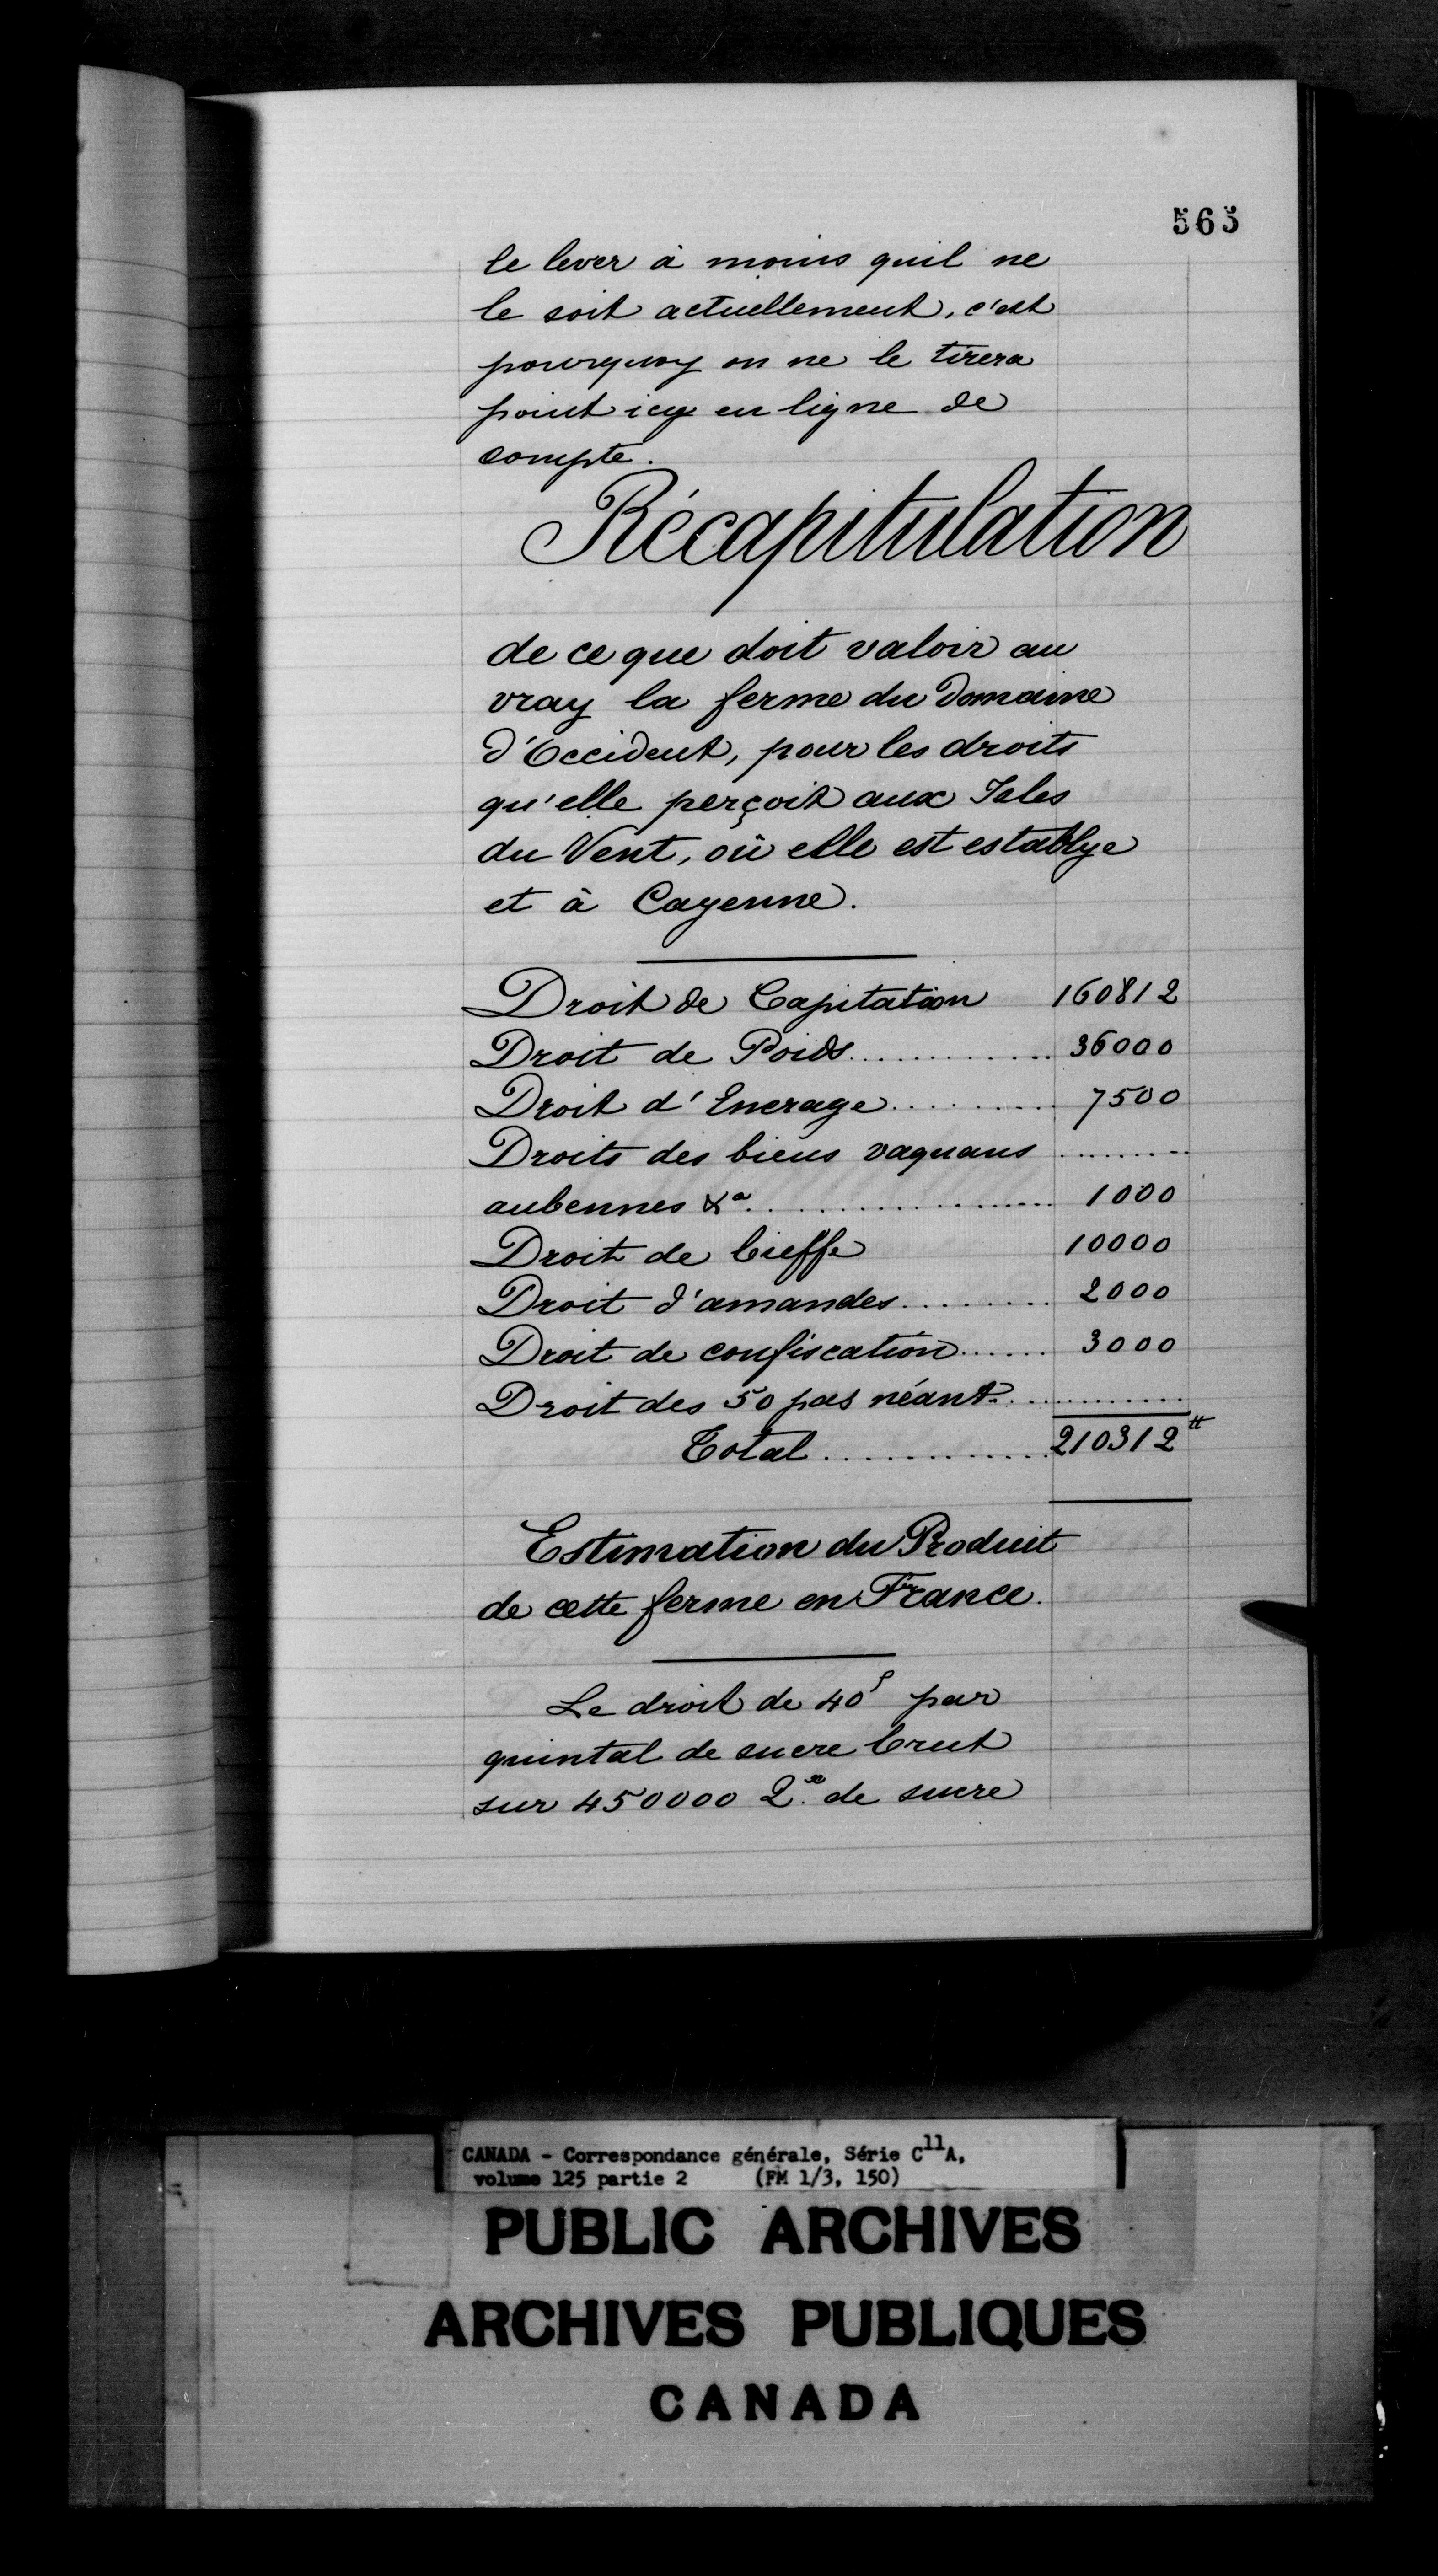 565
le lever à moins quil ne
le soit actuellement, c'est
pourquoy on ne le tirera
point icy en ligne de
compte.
Récapitulation
de ce que doit valoir au
vray la ferme du Domaine
d'Occident, pour les droits
qu'elle perçoit aux Isles
du Vent, où elle est establye
et à Cayenne.
Droit de Capitation 160812
Droit de Poids............ 36000
Droit d'Encrage.......... 7500
Droits des biens vaquans ........
aubennes &a................... 1000
Droit de Grieffe 10000
Droit d'amandes......... 2000
Droit de confiscation...... 3000
Droit des 50 pas néant...............
Total............. 210312 ₶
Estimation du Produit
de cette ferme en France.
Le droit de 40s par
quintal de sucre brut
sur 450000 Qx de sucre
CANADA - Correspondance générale, Série C11A,
volume 125 partie 2 (FM 1/3, 150)
PUBLIC ARCHIVES
ARCHIVES PUBLIQUES
CANADA